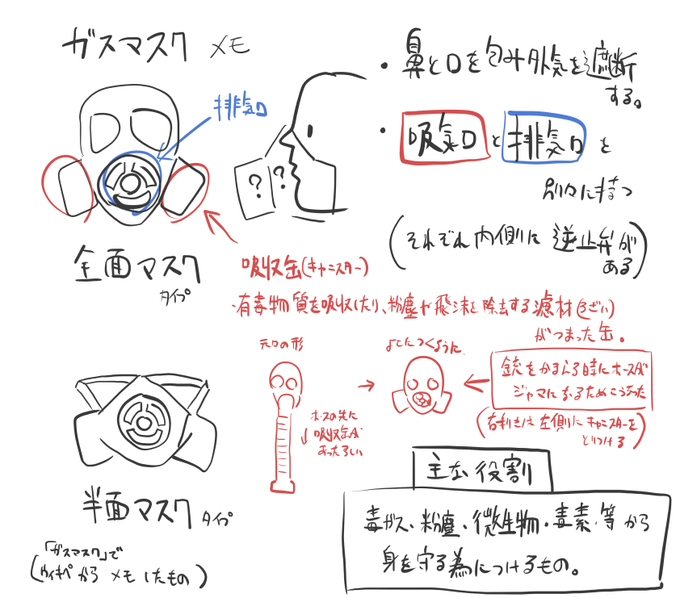 ガスマスク メモ
排気口
・鼻と口を包み外気を遮断
する。
・吸気口と排気口を
別々に持つ
(それぞれ内側に逆止弁が
ある)
? ?
全面マスク
タイプ
吸収缶(キャニスター)
・有毒物質を吸収したり、粉塵や飛沫を除去する濾材(ろざい)
がつまった缶。
元々の形
よこにつくように
ホースの先に
吸収缶が
あったらしい
銃をかまえる時にホースが
ジャマになるためこうなった
(右利きは左側にキャニスターを
とりつける)
半面マスク タイプ
「ガスマスク」で
(ウィキペからメモしたもの)
主な役割
毒ガス、粉塵、微生物・毒素、等から
身を守る為につけるもの。